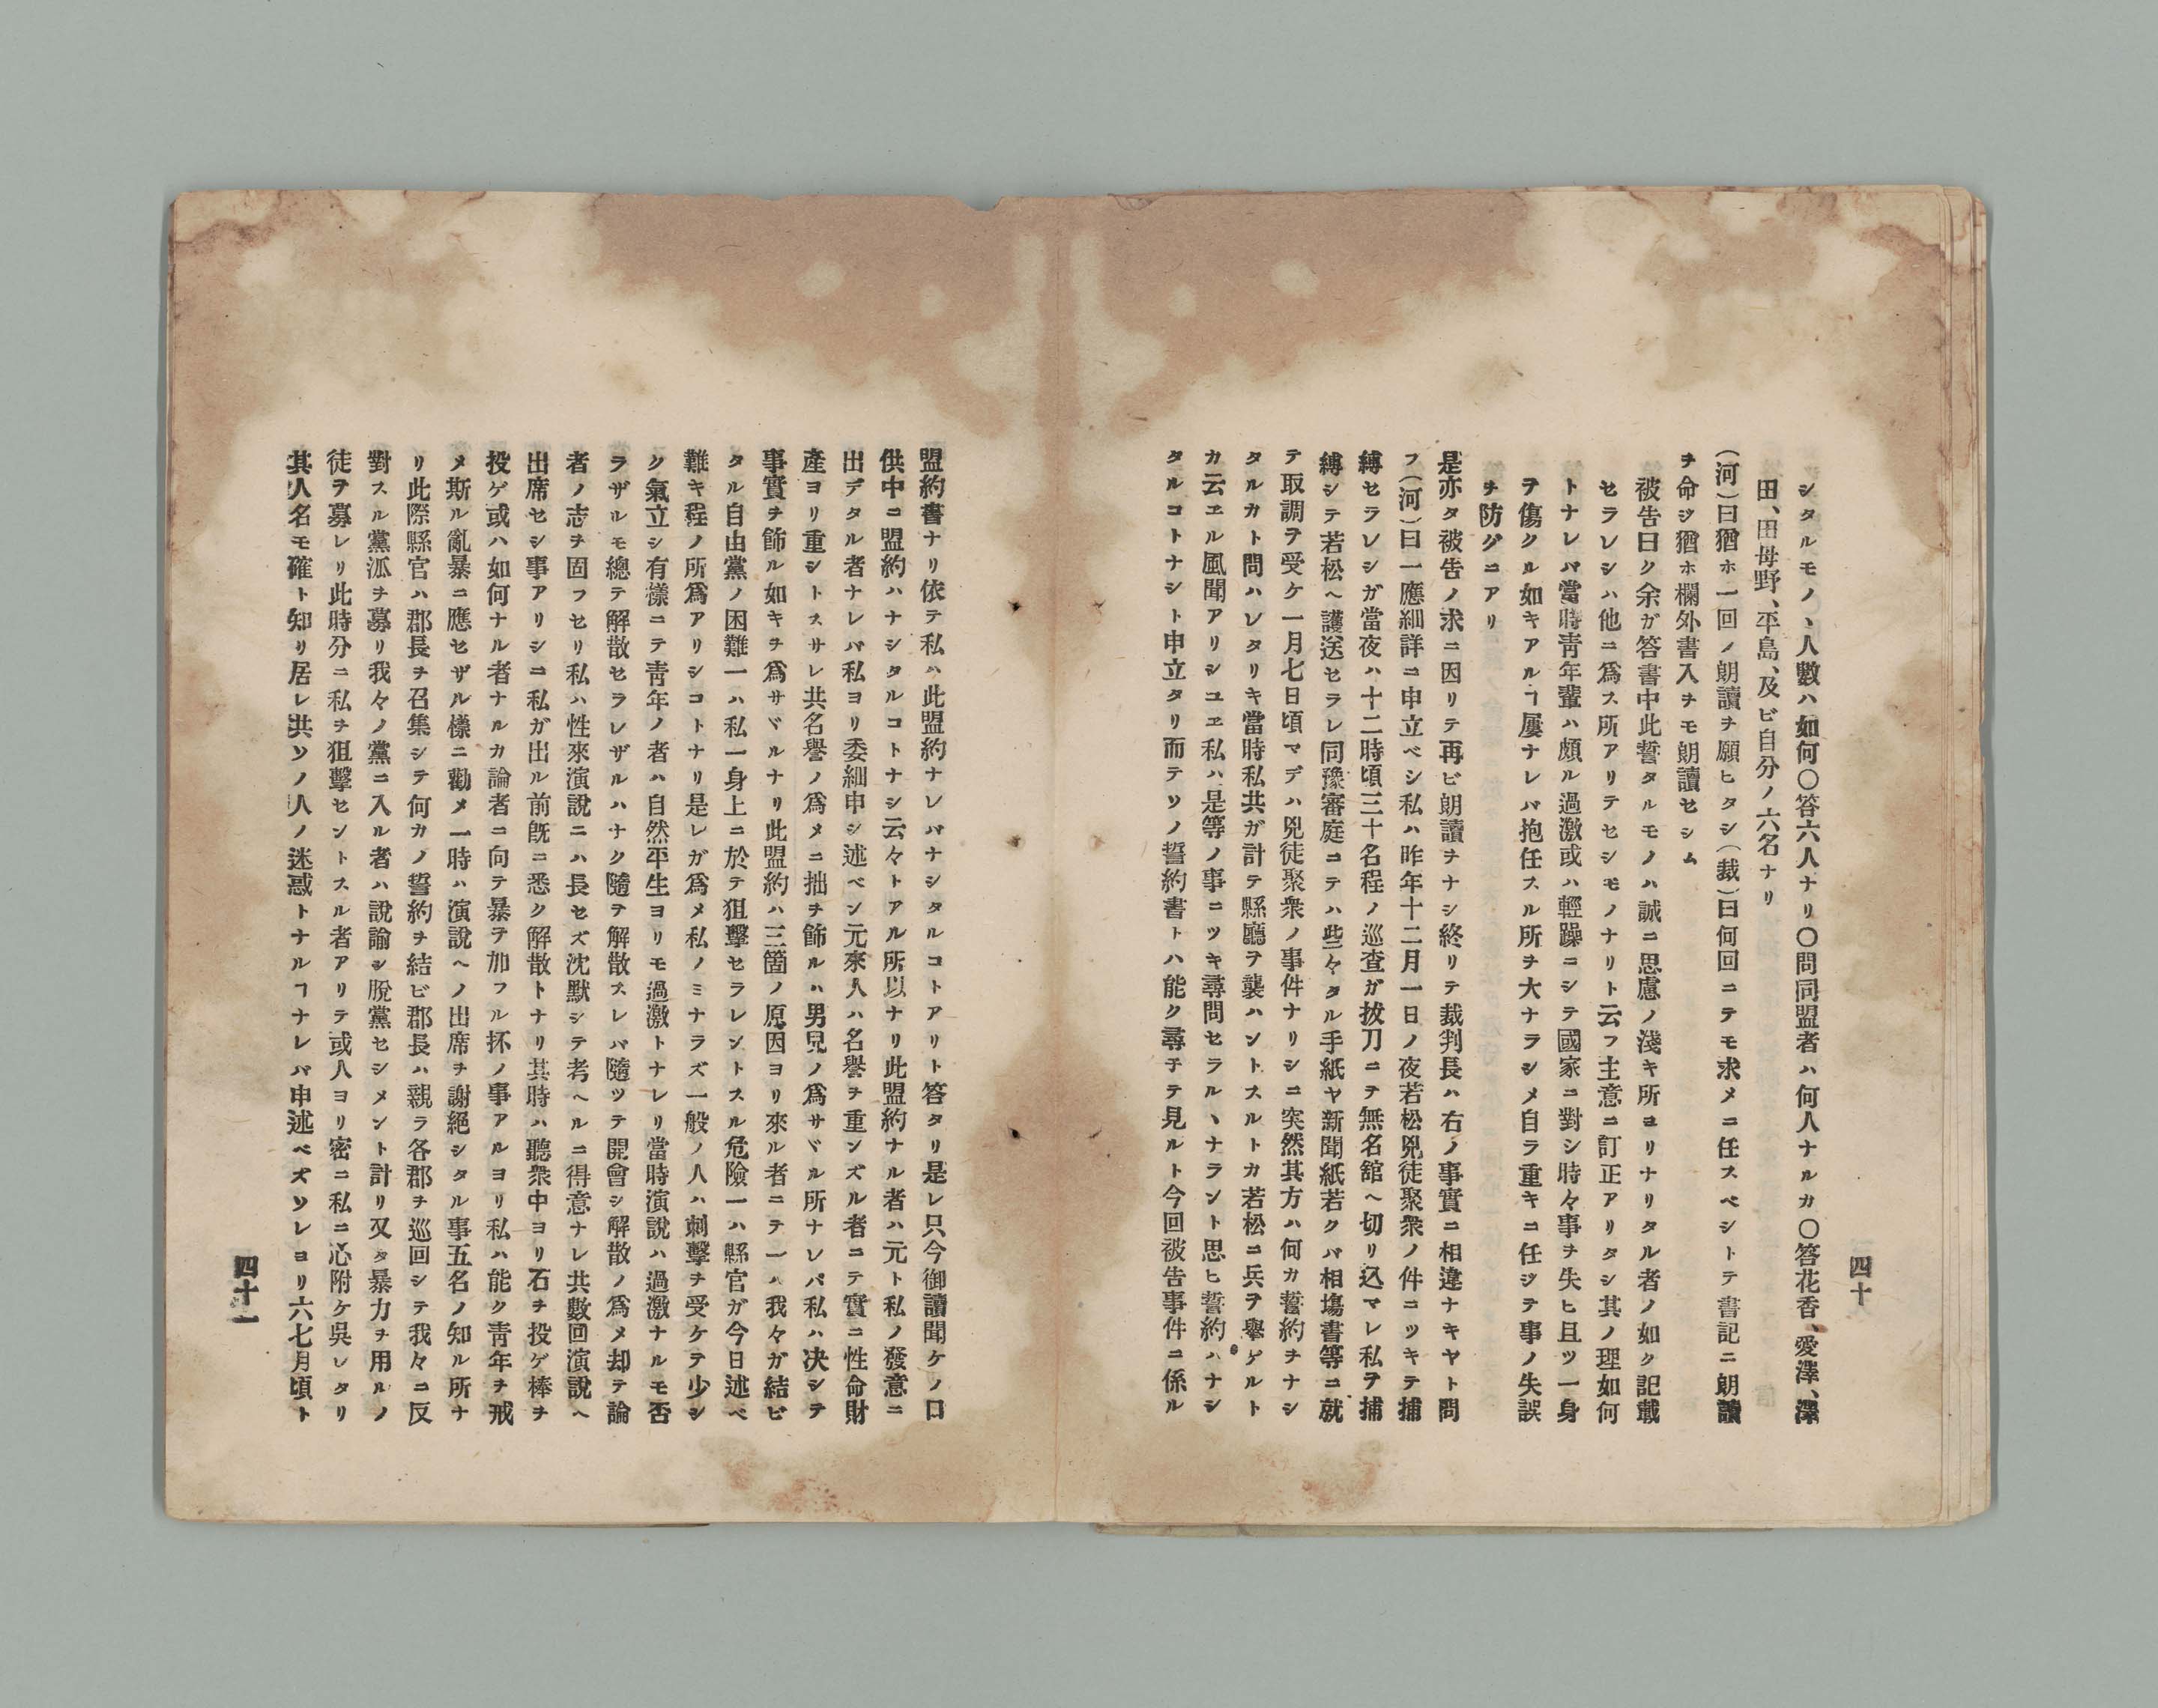 四十
シタルモノヽ人數ハ如何〇答六人ナリ〇問同盟者ハ何人ナルカ〇答花香、愛澤、澤
田、田母野、平島、及ビ自分ノ六名ナリ
(河)曰猶ホ一回ノ朗讀ヲ願ヒタシ(裁)曰何回ニテモ求メニ任スベシトテ書記ニ朗讀
ヲ命ジ猶ホ欄外書入ヲモ朗讀セシム
被告曰ク余ガ答書中此誓タルモノハ誠ニ思慮ノ淺キ所ヨリナリタル者ノ如ク記載
セラレシハ他ニ爲ス所アリテセシモノナリト云フ主意ニ訂正アリタシ其ノ理如何
トナレバ當時靑年輩ハ頗ル過激或ハ輕躁ニシテ國家ニ對シ時々事ヲ失ヒ且ツ一身
ヲ傷クル如キアルヿ屢ナレバ抱任スル所ヲ大ナラシメ自ラ重キニ任ジテ事ノ失誤
ヲ防グニアリ
是亦タ被告ノ求ニ因リテ再ビ朗讀ヲナシ終リテ裁判長ハ右ノ事實ニ相違ナキヤト問
フ(河)曰一應細詳ニ申立ベシ私ハ昨年十二月一日ノ夜若松兇徒聚衆ノ件ニツキテ捕
縛セラレシガ當夜ハ十二時頃三十名程ノ巡査ガ拔刀ニテ無名舘ヘ切リ込マレ私ヲ捕
縛シテ若松ヘ護送セラレ同豫審庭ニテハ些々タル手紙ヤ新聞紙若クバ相塲書等ニ就
テ取調ヲ受ケ一月七日頃マデハ兇徒聚衆ノ事件ナリシニ突然其方ハ何カ誓約ヲナシ
タルカト問ハレタリキ當時私共ガ計テ縣廳ヲ襲ハントスルトカ若松ニ兵ヲ擧ゲルト
カ云エル風聞アリシユヱ私ハ是等ノ事ニツキ尋問セラルヽナラント思ヒ誓約ハナシ
タルコトナシト申立タリ而テソノ誓約書トハ能ク尋子テ見ルト今回被告事件ニ係ル
盟約書ナリ依テ私ハ此盟約ナレバナシタルコトアリト答タリ是レ只今御讀聞ケノ口
供中ニ盟約ハナシタルコトナシ云々トアル所以ナリ此盟約ナル者ハ元ト私ノ發意ニ
出デタル者ナレバ私ヨリ委細申シ述ベン元來人ハ名譽ヲ重ンズル者ニテ實ニ性命財
產ヨリ重シトスサレ共名譽ノ爲メニ拙ヲ飾ルハ男兒ノ爲サヾル所ナレバ私ハ决シテ
事實ヲ飾ル如キヲ爲サヾルナリ此盟約ハ三箇ノ原因ヨリ來ル者ニテ一ハ我々ガ結ビ
タル自由黨ノ困難一ハ私一身上ニ於テ狙擊セラレントスル危險一ハ縣官ガ今日述ベ
難キ程ノ所爲アリシコトナリ是レガ爲メ私ノミナラズ一般ノ人ハ刺擊ヲ受ケテ少シ
ク氣立シ有樣ニテ靑年ノ者ハ自然平生ヨリモ過激トナレリ當時演說ハ過激ナルモ否
ラザルモ總テ解散セラレザルハナク隨テ解散スレバ隨ツテ開會シ解散ノ爲メ却テ論
者ノ志ヲ固フセリ私ハ性來演說ニハ長セズ沈默シテ考ヘルニ得意ナレ共數回演說ヘ
出席セシ事アリシニ私ガ出ル前旣ニ悉ク解散トナリ其時ハ聽衆中ヨリ石ヲ投ゲ棒ヲ
投ゲ或ハ如何ナル者ナルカ論者ニ向テ暴ヲ加フル抔ノ事アルヨリ私ハ能ク靑年ヲ戒
メ斯ル亂暴ニ應セザル樣ニ勸メ一時ハ演說ヘノ出席ヲ謝絕シタル事五名ノ知ル所ナ
リ此際縣官ハ郡長ヲ召集シテ何カノ誓約ヲ結ビ郡長ハ親ラ各郡ヲ巡回シテ我々ニ反
對スル黨派ヲ募リ我々ノ黨ニ入ル者ハ說諭シ脫黨セシメント計リ又タ暴力ヲ用ルノ
徒ヲ募レリ此時分ニ私ヲ狙擊セントスル者アリテ或人ヨリ密ニ私ニ心附ケ吳レタリ
其人名モ確ト知リ居レ共ソノ人ノ迷惑トナルヿナレバ申述ベズソレヨリ六七月頃ト
四十一